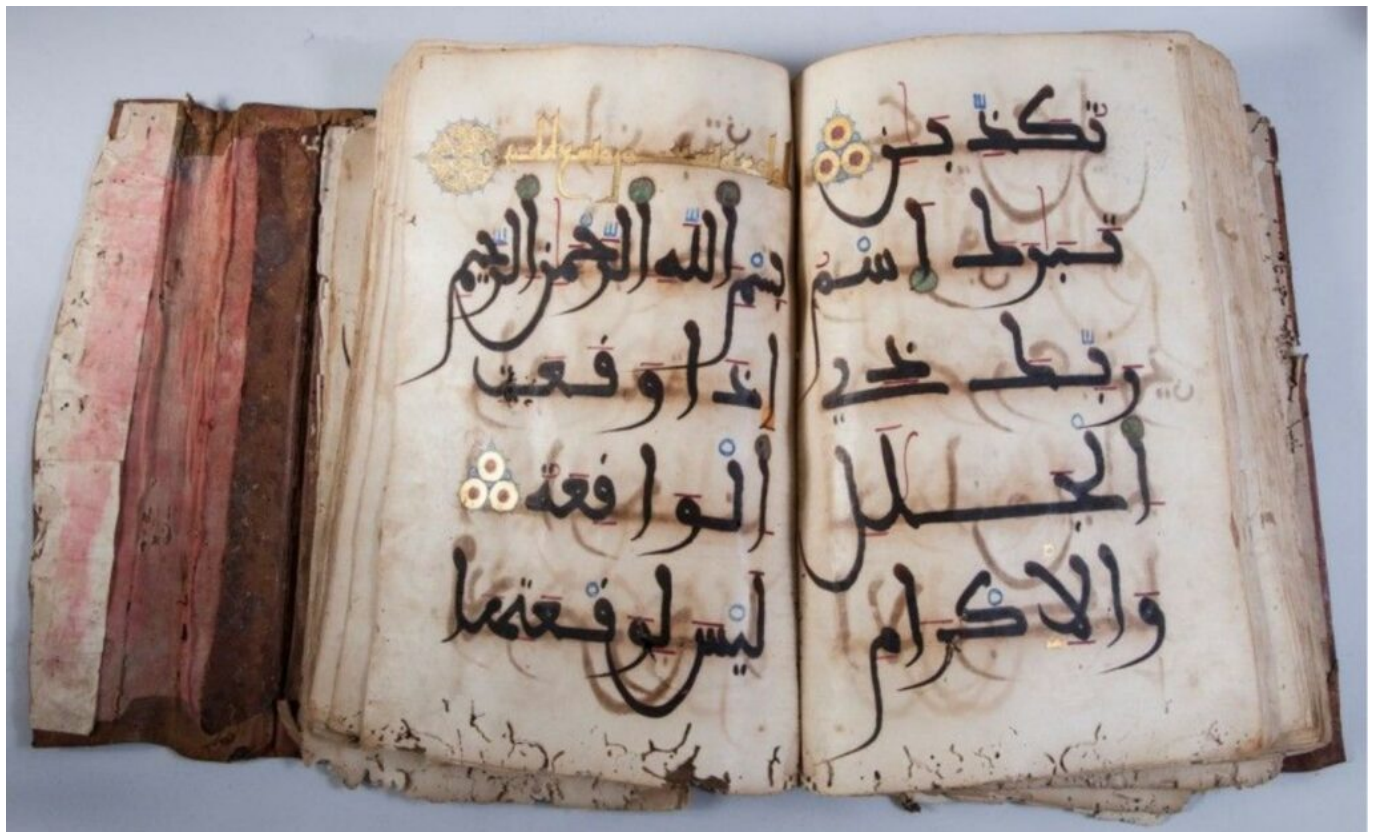 تُكَذِّبَٰنِ
تَبَٰرَكَ اسْمُ
رَبِّكَ ذِي
الْجَلَٰلِ
وَالْاِكْرَامِ
بِسْمِ اللَّهِ الرَّحْمَٰنِ الرَّحِيمِ
إِذَا وَقَعَتِ
الْوَاقِعَةُ
لَيْسَ لِوَقْعَتِهَا